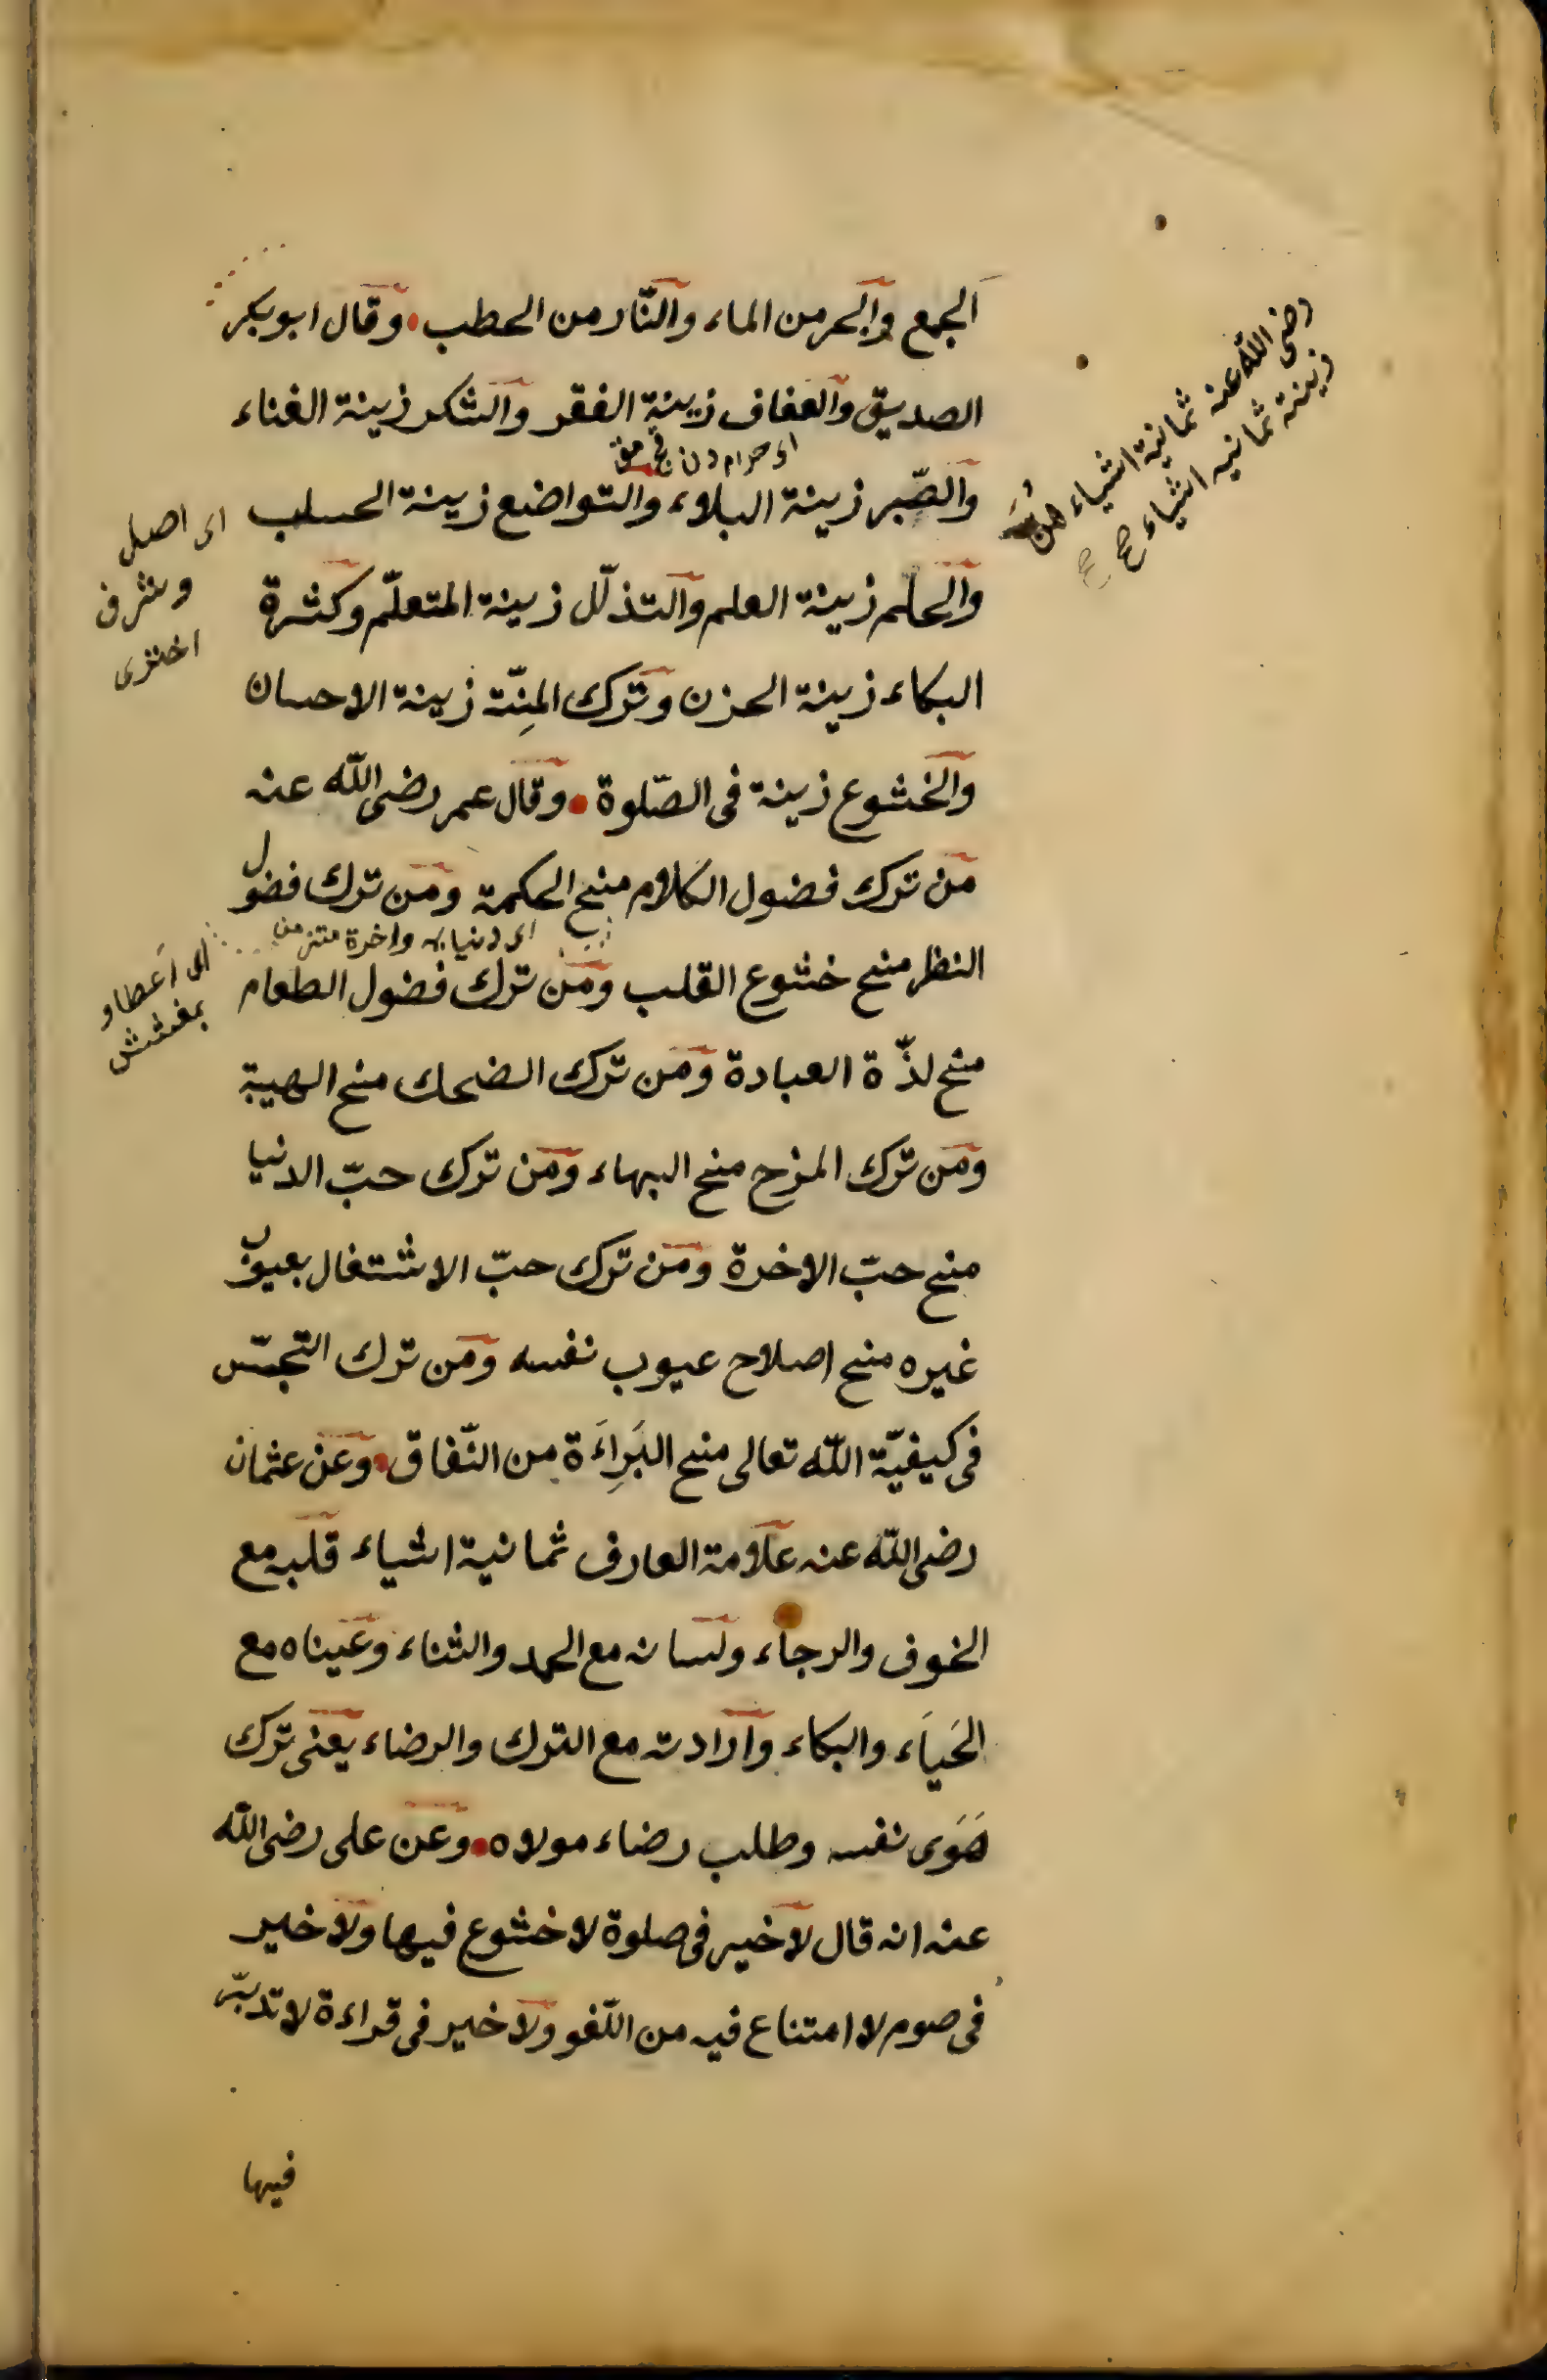 الجمع والبحر من الماء والنّار من الحطب وقال ابو بكر
رضى الله عنه ثمانية اشياء هنّ
زينة ثمانيه اشياء صح
الصديق والعفاف زينة الفقر والشكر زينة الغناء
اى حرام دن
والصّبر زينة البلاء والتواضع زينة الحساب
اى اصل
وشرف
والحلم زينة العلم والتذلّل زينة المتعلّم وكثرة
البكاء زينة الحزن وترك المِنّة زينة الاحسان
والخشوع زينة فى الصّلوة وقال عمر رضى الله عنه
من ترك فضول الكلام منح الحكمة ومن ترك فضول
اى دنيا واخرة
النظر منح خشوع القلب ومن ترك فضول الطعام
منح لذّة العبادة ومن ترك الضحك منح الهيبة
ومن ترك المزح منح البهاء ومن ترك حبّ الدنيا
منح حبّ الاخرة ومن ترك حبّ الاشتغال بعيوب
غيره منح اصلاح عيوب نفسه ومن ترك التجسّس
فى كيفيّة الله تعالى منح البَراءَة من النّفاق وعن عثمان
رضى الله عنه علامة العارف ثمانية اشياء قلبه مع
الخوف والرجاء ولسانه مع الحمد والثناء وعيناه مع
الحَياَء والبكاء وارادته مع الترك والرضاء يعنى ترك
هَوَى نفسه وطلب رضاء مولاه وعن على رضى الله
عنه انه قال لا خير فى صلوة لا خشوع فيها ولا خير
فى صوم لا امتناع فيه من اللّغو ولا خير فى قراءة لا تدبّر
فيها